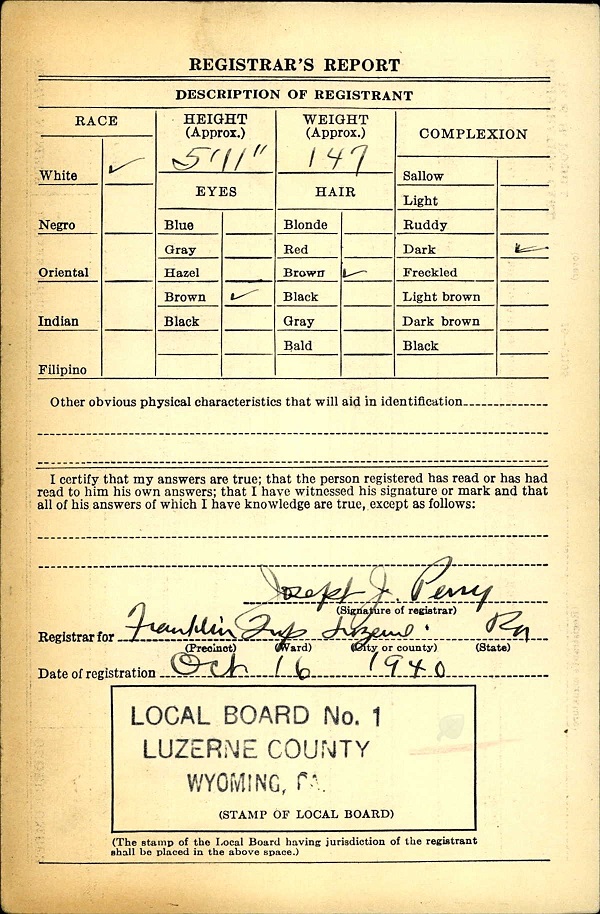 REGISTRAR'S REPORT
DESCRIPTION OF REGISTRANT
RACE
HEIGHT (Approx.)
WEIGHT (Approx.)
COMPLEXION
5'11"
147
White ✓
Sallow
EYES
HAIR
Light
Negro
Blue
Blonde
Ruddy
Gray
Red
Dark ✓
Oriental
Hazel
Brown ✓
Freckled
Brown ✓
Black
Light brown
Indian
Black
Gray
Dark brown
Bald
Black
Filipino
Other obvious physical characteristics that will aid in identification
I certify that my answers are true; that the person registered has read or has had
read to him his own answers; that I have witnessed his signature or mark and that
all of his answers of which I have knowledge are true, except as follows:
Joseph J. Perry
(Signature of registrar)
Registrar for Franklin Twp Luzerne Pa
(Precinct) (Ward) (City or county) (State)
Date of registration Oct 16 1940
LOCAL BOARD No. 1
LUZERNE COUNTY
WYOMING, PA.
(STAMP OF LOCAL BOARD)
(The stamp of the Local Board having jurisdiction of the registrant
shall be placed in the above space.)